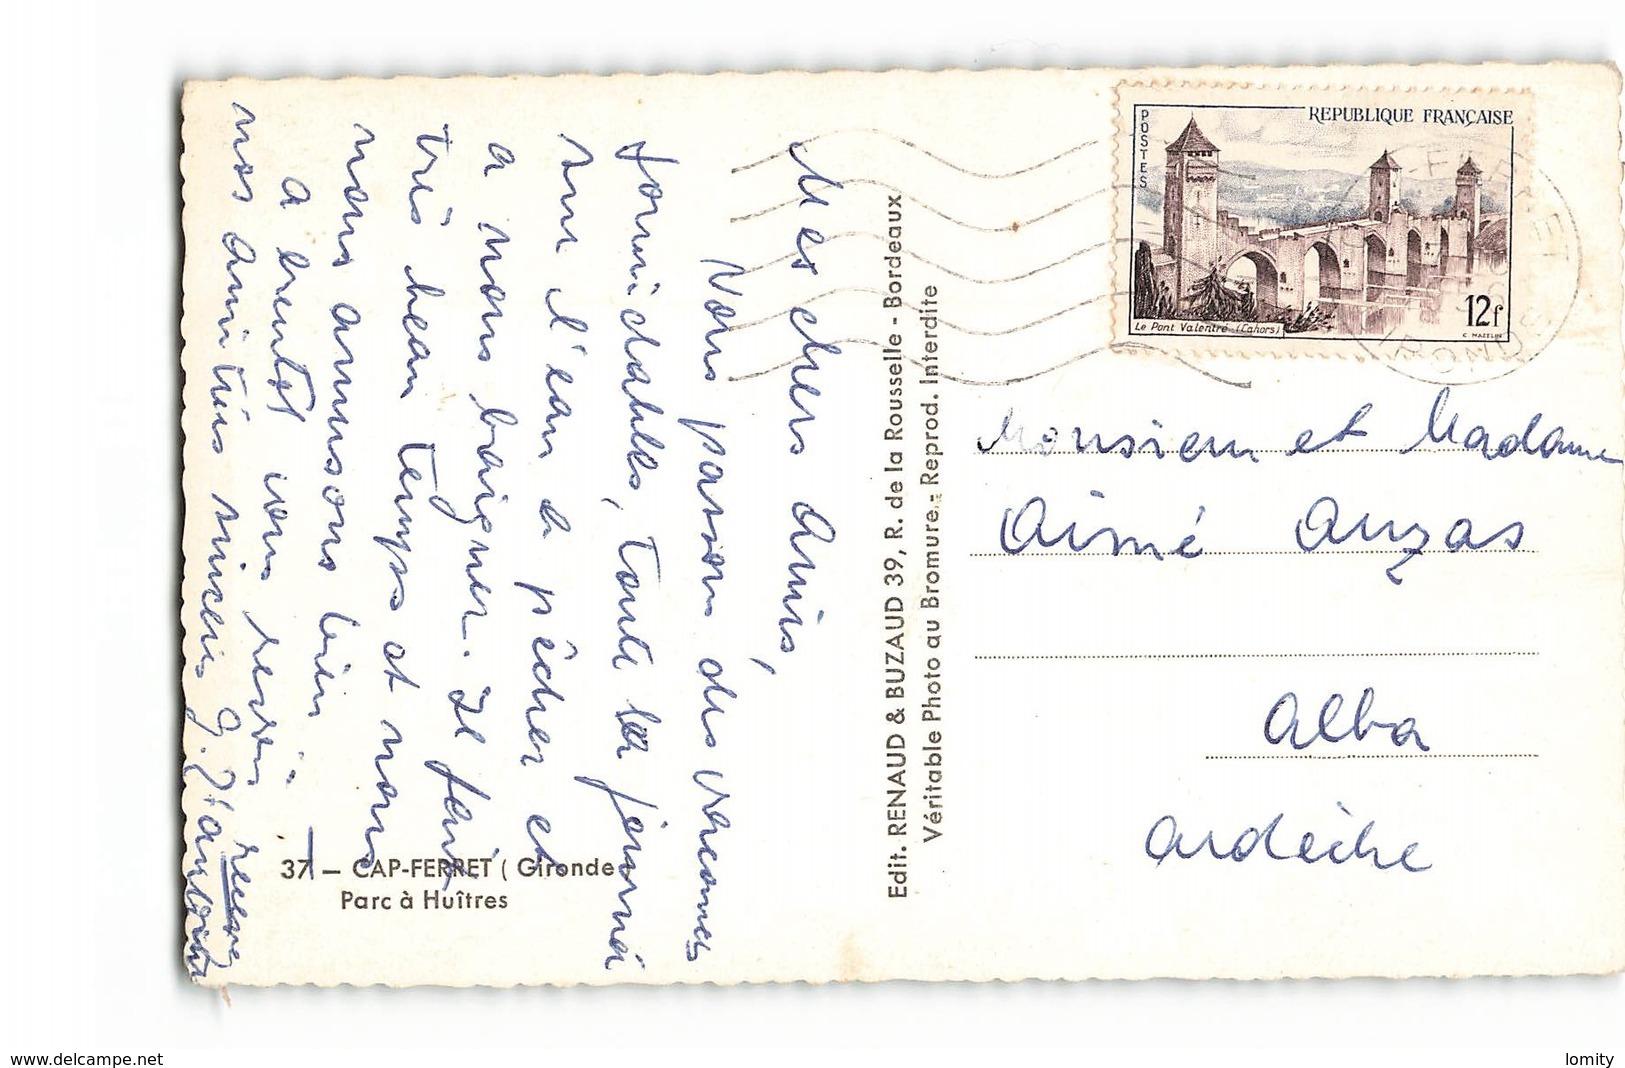 Mes chers Amis,
Nous passons des vacances
formidables, toute la journée
sur l'eau a pêcher et
a nous baigner. Il fait
très beau temps et nous
nous amusons bien.
A bientot vous revoir
recevez
nos amitiés sincères G.
37 — CAP-FERRET ( Gironde )
Parc à Huîtres
Edit. RENAUD & BUZAUD 39, R. de la Rousselle - Bordeaux
Véritable Photo au Bromure - Reprod. Interdite
REPUBLIQUE FRANÇAISE
POSTES
12f
Le Pont Valentré (Cahors)
C. MAZELIN
FERRET
GIRONDE
Monsieur et Madame
Aimé Auzas
Alba
Ardèche
www.delcampe.net
lomity